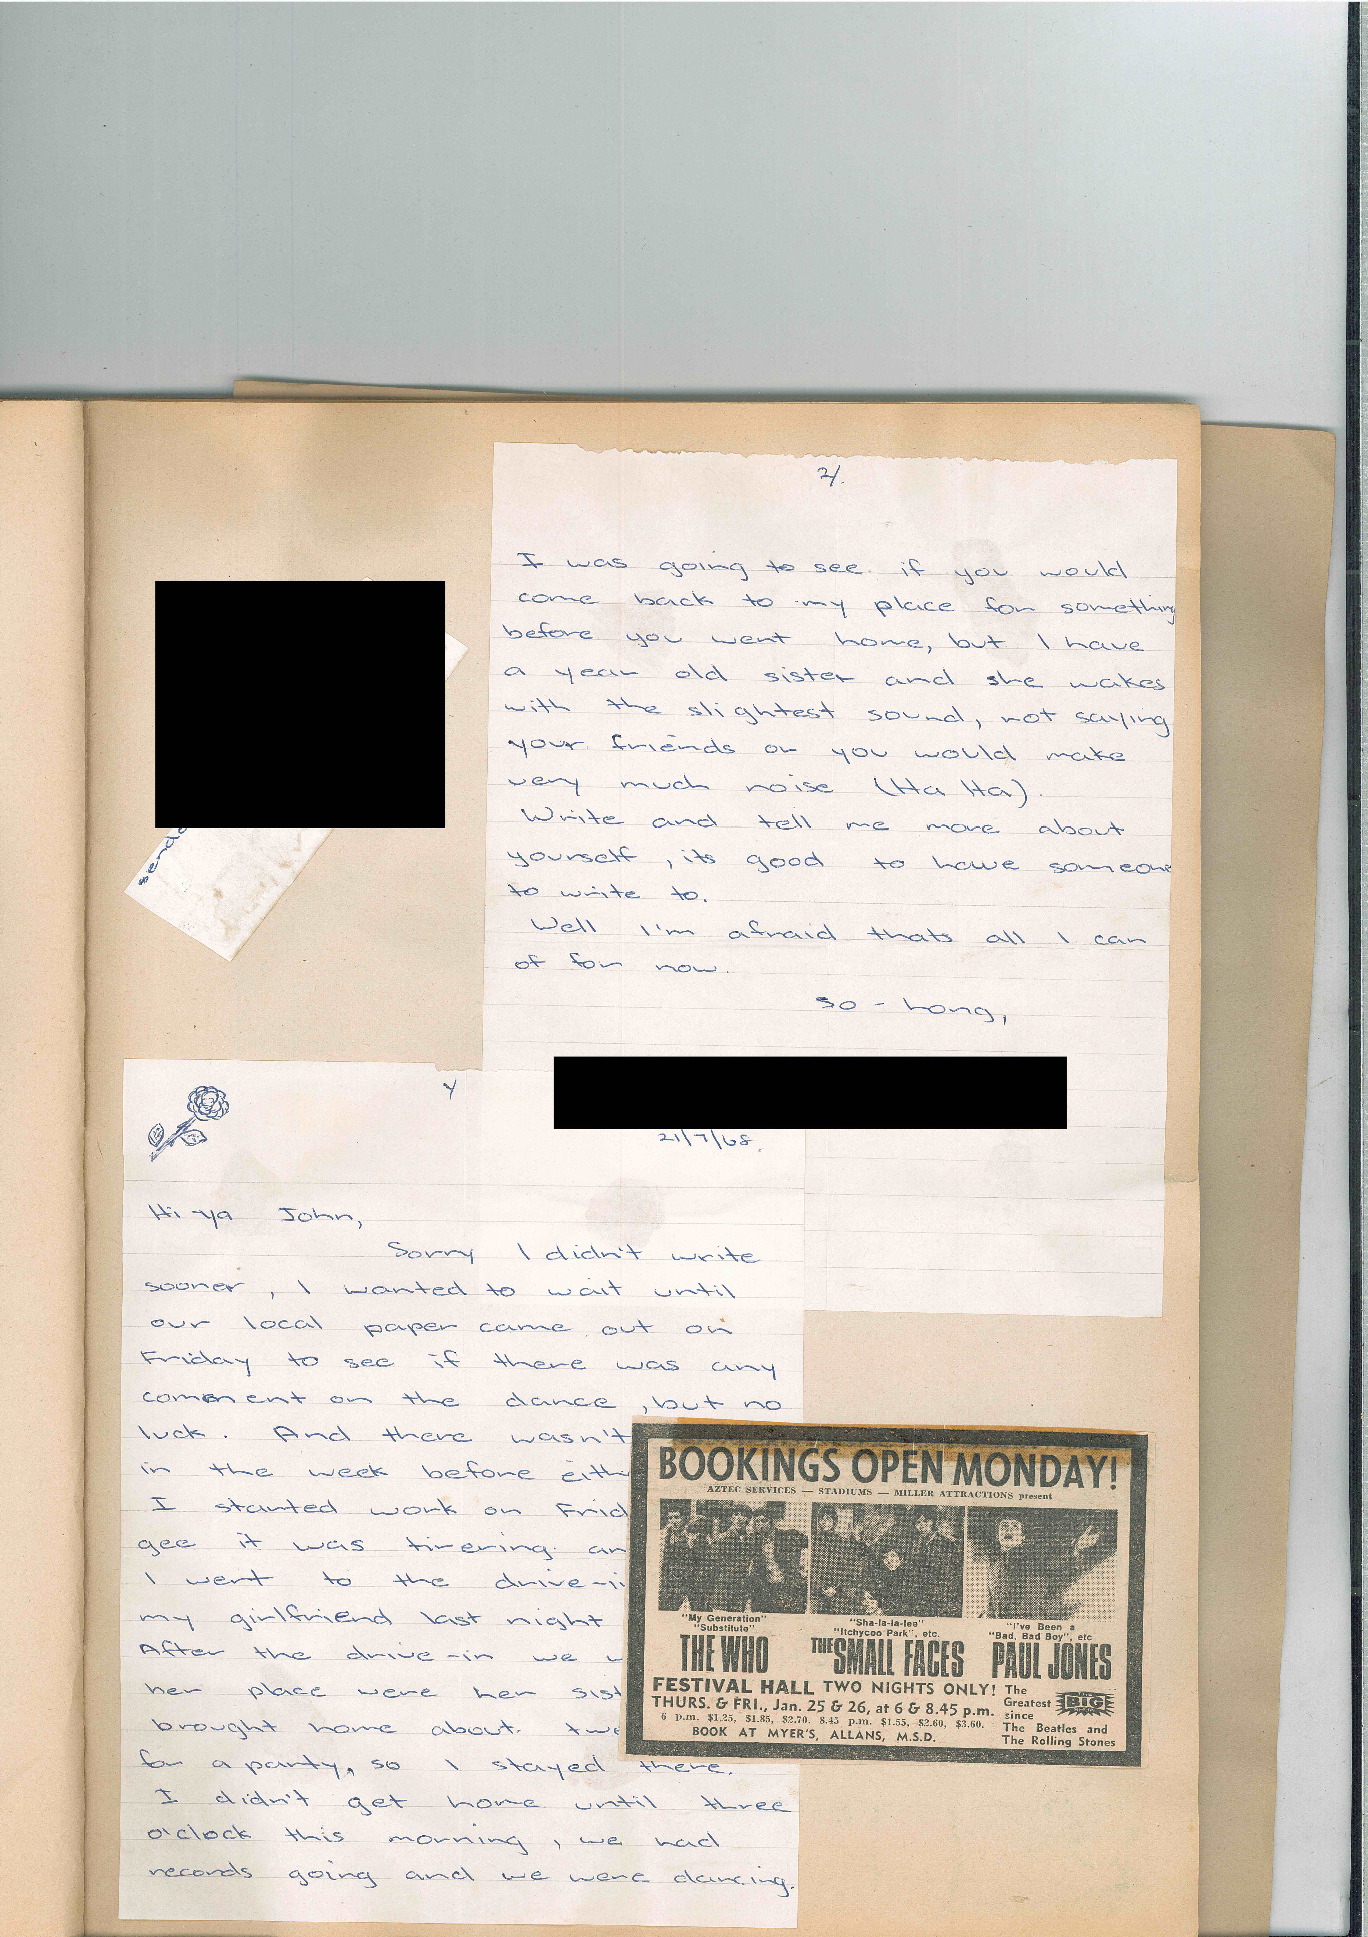 2/.
I was going to see if you would
come back to my place for something
before you went home, but I have
a year old sister and she wakes
with the slightest sound, not saying
your friends or you would make
very much noise (Ha Ha).
Write and tell me more about
yourself, its good to have someone
to write to.
Well I'm afraid thats all I can
of for now.
so - Long,
1/
21/7/68.
Hi ya John,
Sorry I didn't write
sooner, I wanted to wait until
our local paper came out on
Friday to see if there was any
comment on the dance, but no
luck. And there wasn't
in the week before eith
I started work on Frid
gee it was tirering an
I went to the drive-i
my girlfriend last night
After the drive-in we w
her place were her sist
brought home about twe
for a party, so I stayed there.
I didn't get home until three
o'clock this morning, we had
records going and we were dancing.
BOOKINGS OPEN MONDAY!
AZTEC SERVICES — STADIUMS — MILLER ATTRACTIONS present
"My Generation"
"Substitute"
THE WHO
"Sha-la-la-lee"
"Itchycoo Park", etc.
THE SMALL FACES
"I've Been a
"Bad, Bad Boy", etc
PAUL JONES
FESTIVAL HALL TWO NIGHTS ONLY!
THURS. & FRI., Jan. 25 & 26, at 6 & 8.45 p.m.
6 p.m. $1.25, $1.85, $2.70. 8.45 p.m. $1.55, $2.60, $3.60.
BOOK AT MYER'S, ALLANS, M.S.D.
The
Greatest BIG
since
The Beatles and
The Rolling Stones